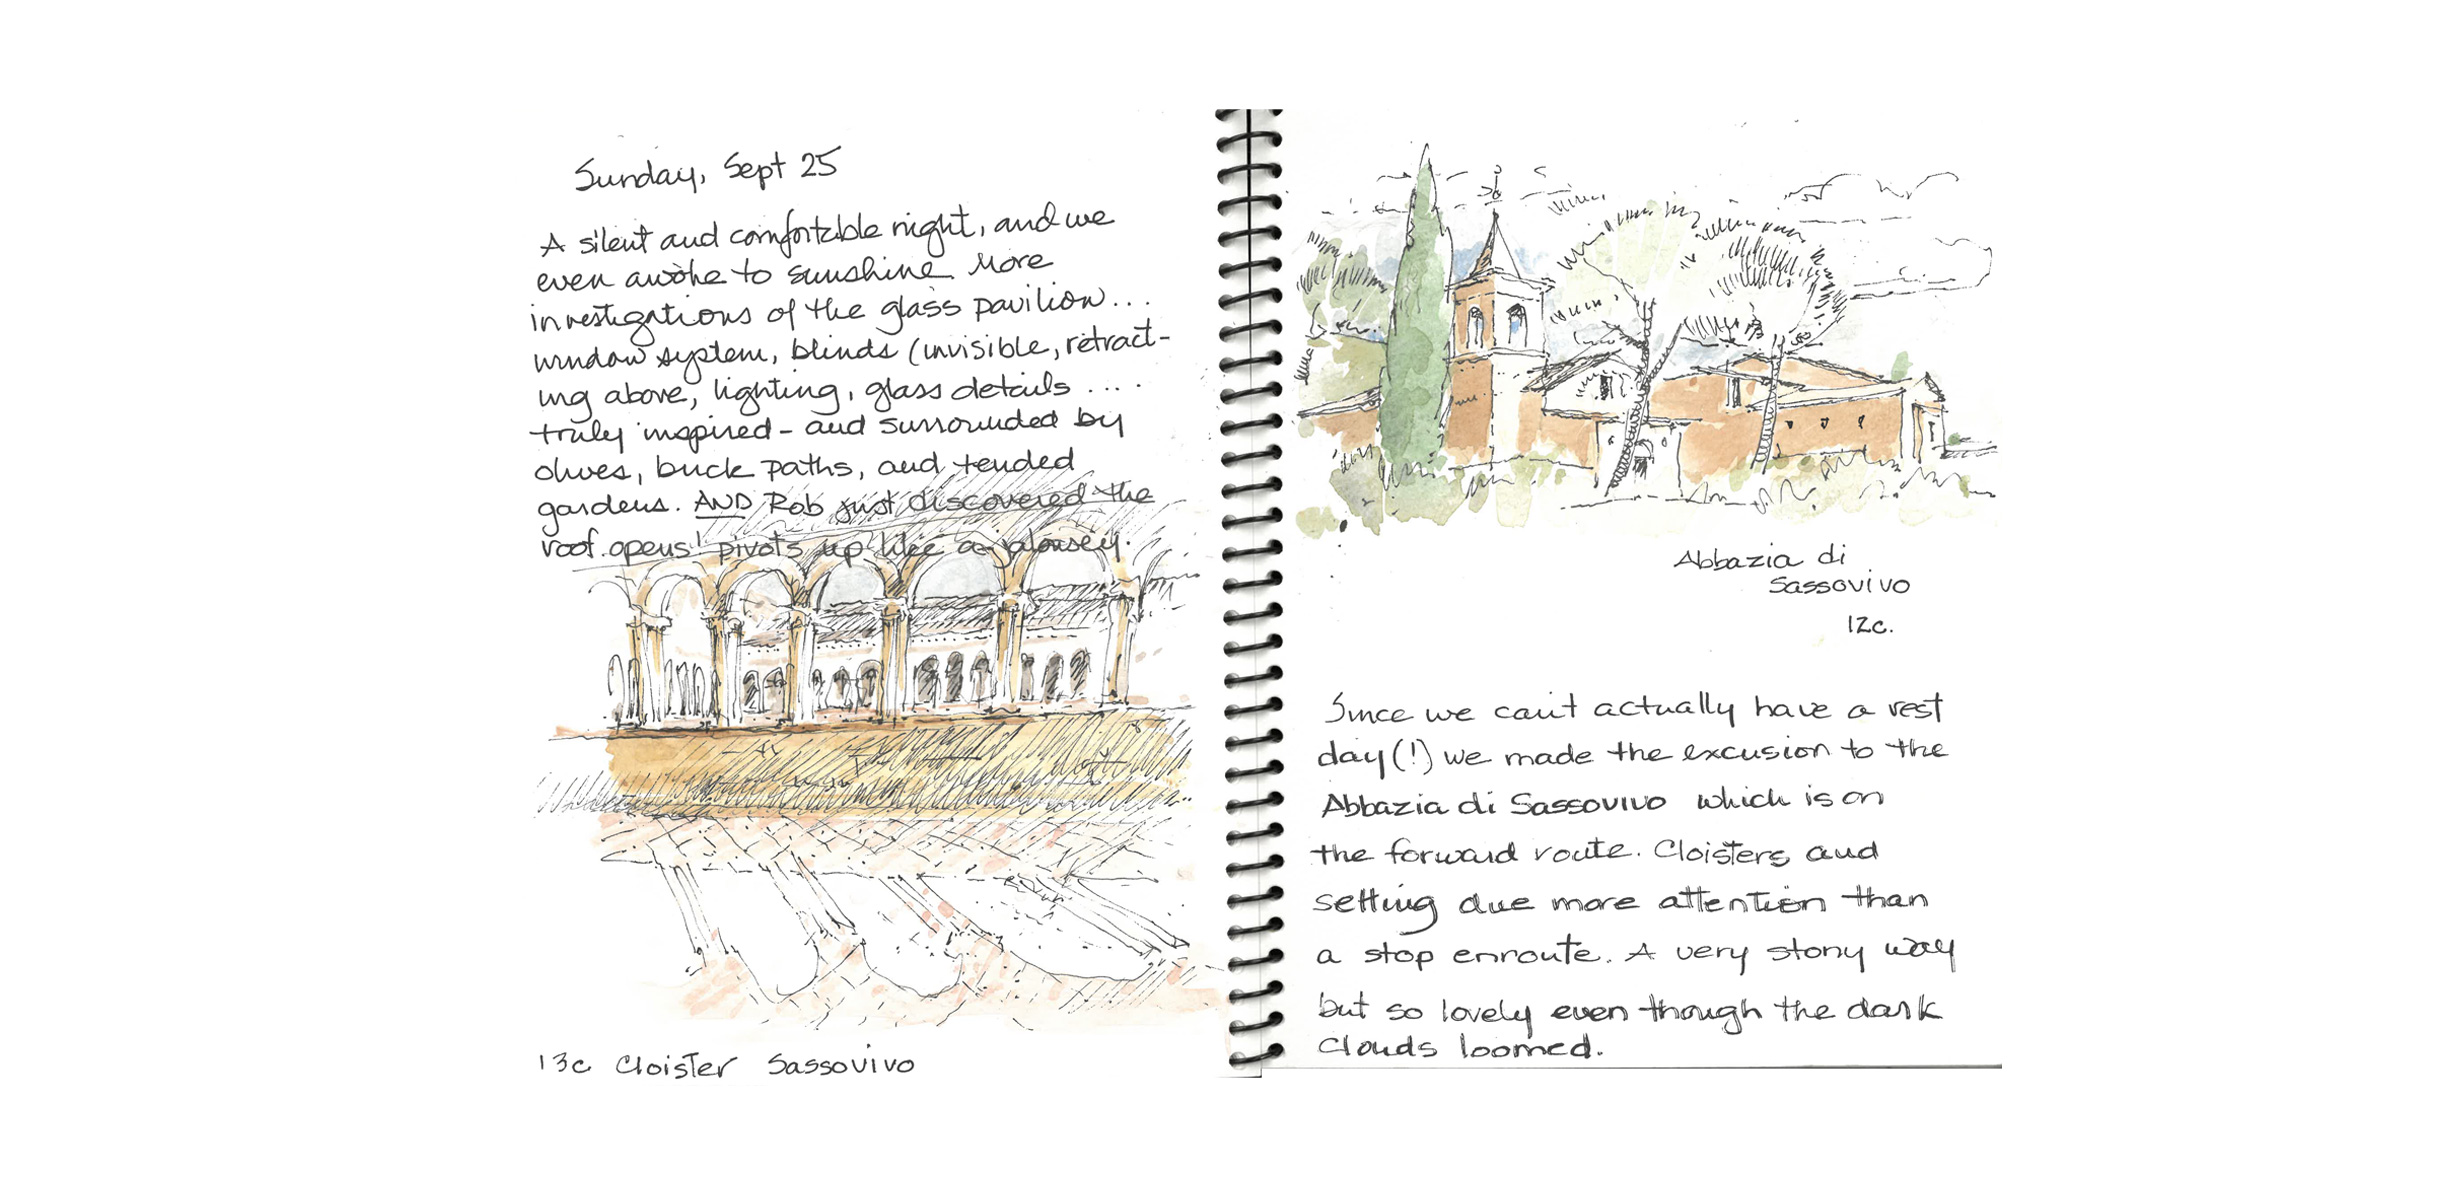 Sunday, Sept 25
A silent and comfortable night, and we
even awoke to sunshine. More
investigations of the glass pavilion...
window system, blinds (invisible, retract-
ing above, lighting, glass details ....
truly inspired - and surrounded by
olives, buck paths, and tended
gardens. AND Rob just discovered the
roof opens! pivots up like a jalousey.
13c Cloister Sassovivo
Abbazia di
Sassovivo
12c.
Since we can't actually have a rest
day(!) we made the excusion to the
Abbazia di Sassovivo which is on
the forward route. Cloisters and
setting due more attention than
a stop enroute. A very stony way
but so lovely even though the dark
clouds loomed.